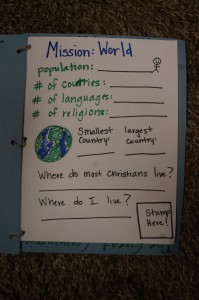 Mission: World
population:
# of counties:
# of languages:
# of religions:
Smallest Country:
largest country:
Where do most Christians live?
Where do I live?
Stamp Here!